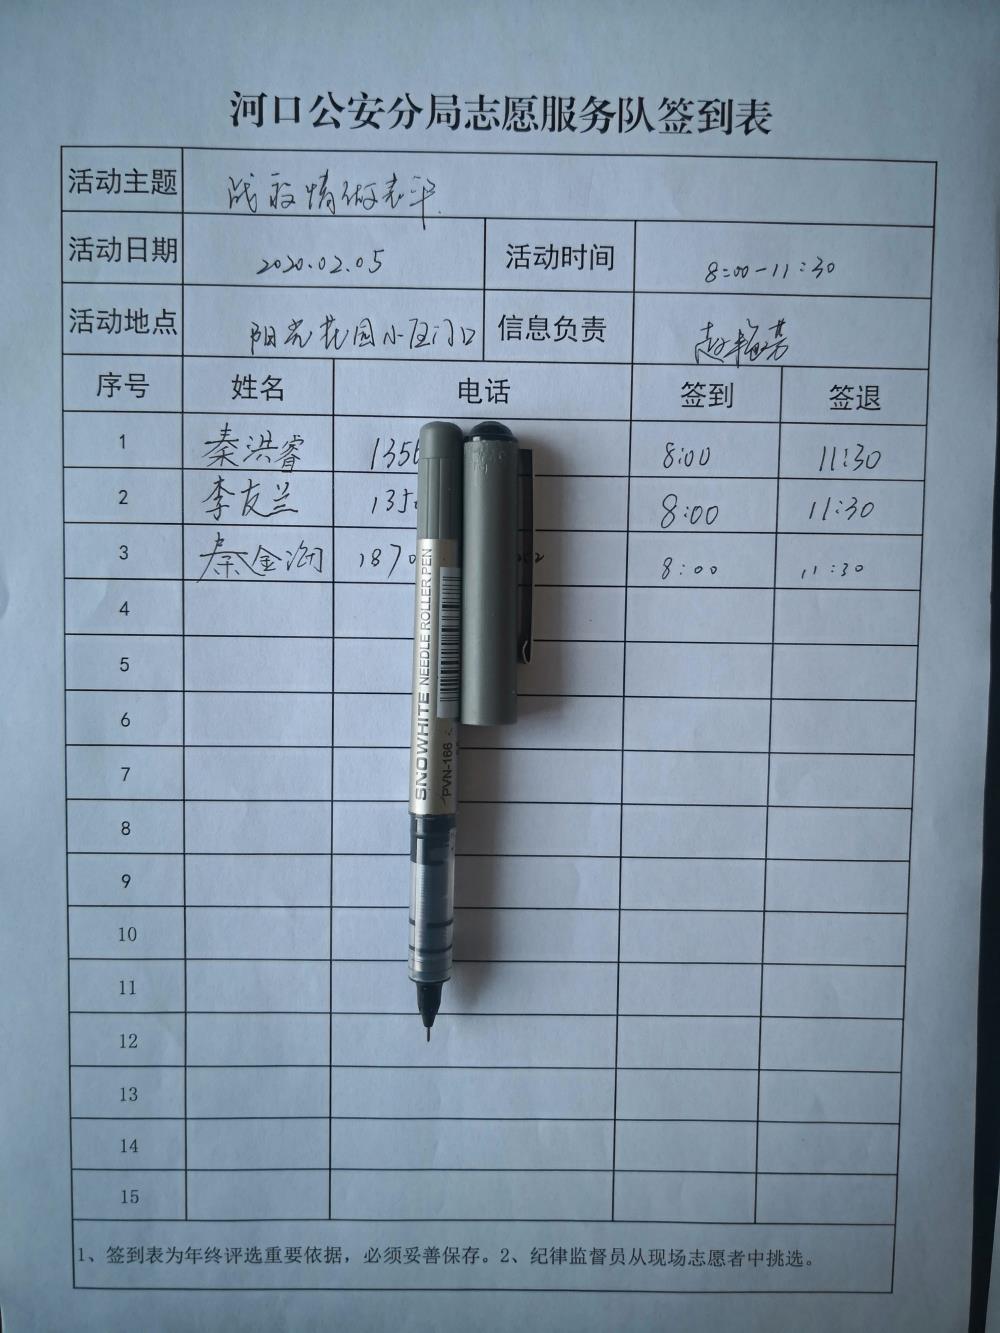 河口公安分局志愿服务队签到表
活动主题 战疫情做表率
活动日期 2020.02.05 活动时间 8:00-11:30
活动地点 阳光花园小区门口 信息负责
序号 姓名 电话 签到 签退
1 秦洪睿 135 8:00 11:30
2 李友兰 135 8:00 11:30
3 秦金润 1870 8:00 11:30
4
5
6
7
8
9
10
11
12
13
14
15
1、签到表为年终评选重要依据，必须妥善保存。2、纪律监督员从现场志愿者中挑选。
SNOWHITE NEEDLE ROLLER PEN
PVN-166